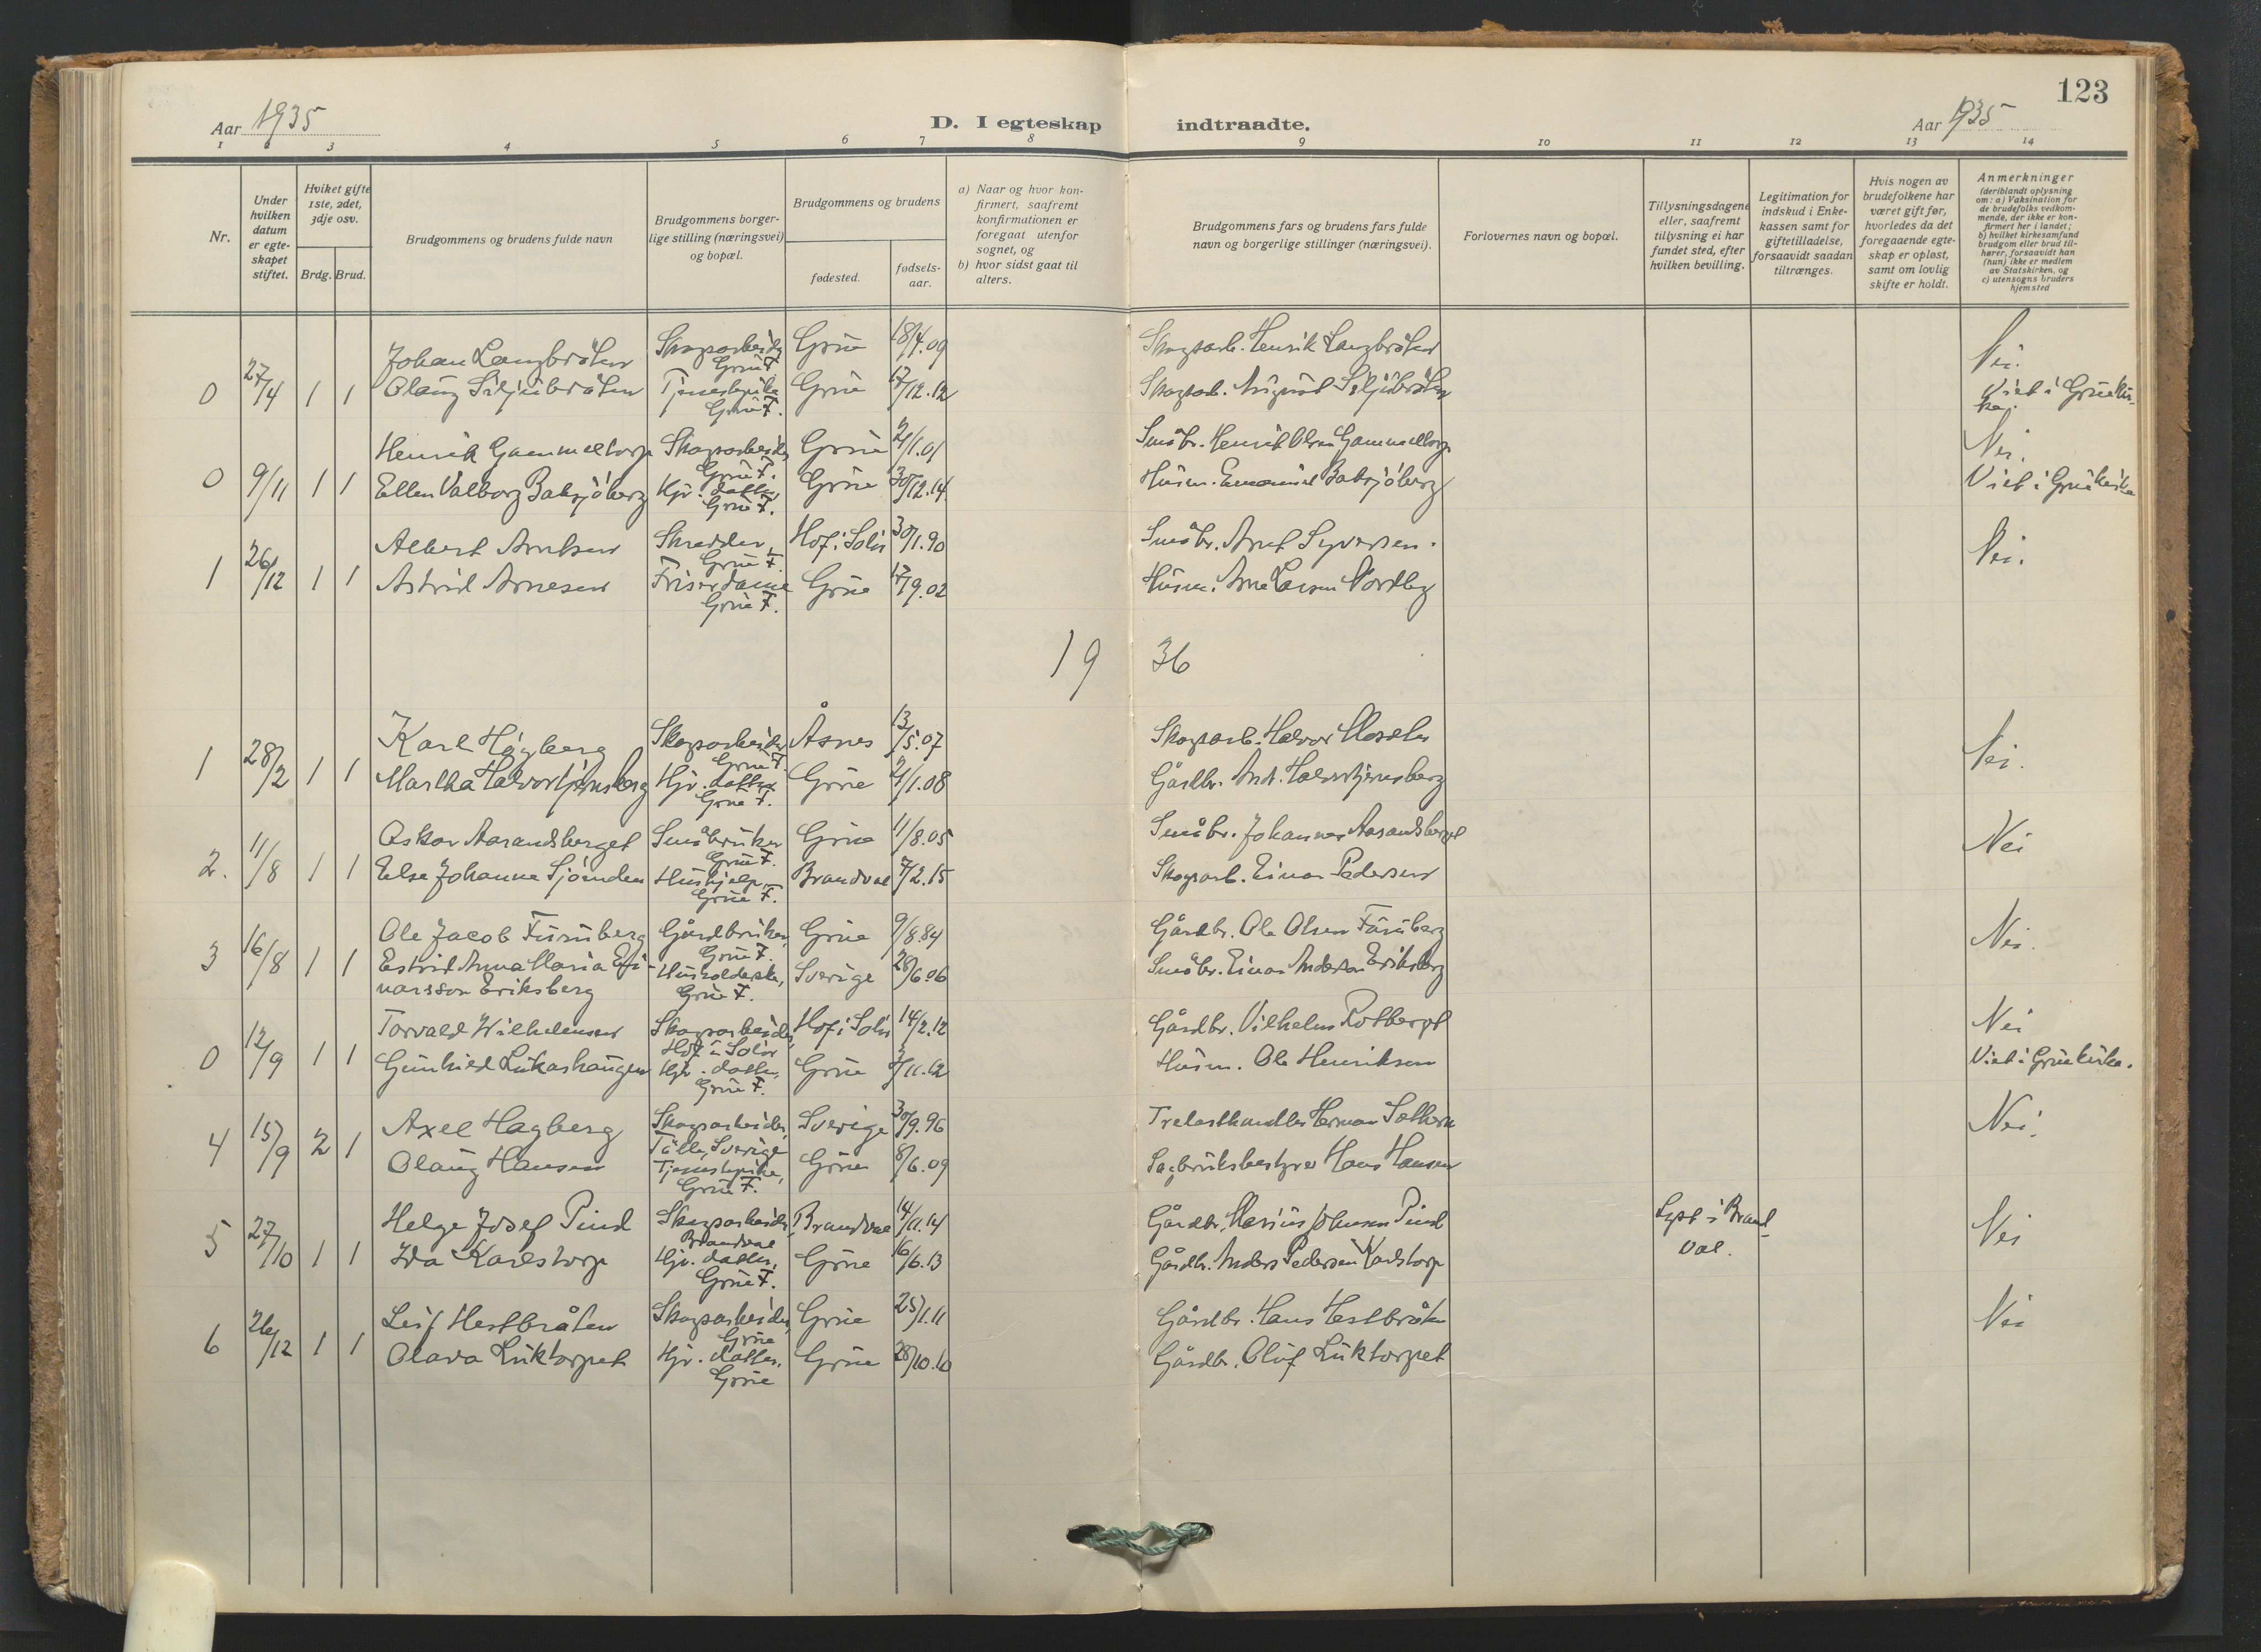 123
Aar 1935
D. I egteskap indtraadte.
Aar 1935
1 2 3 4 5 6 7 8 9 10 11 12 13 14
Nr.
Under
hvilken
datum
er egte-
skapet
stiftet.
Hviket gifte
1ste, 2det,
3dje osv.
Brdg. Brud.
Brudgommens og brudens fulde navn
Brudgommens borger-
lige stilling (næringsvei)
og bopæl.
Brudgommens og brudens
fødested.
fødsels-
aar.
a) Naar og hvor kon-
firmert, saafremt
konfirmationen er
foregaat utenfor
sognet, og
b) hvor sidst gaat til
alters.
Brudgommens fars og brudens fars fulde
navn og borgerlige stillinger (næringsvei).
Forlovernes navn og bopæl.
Tillysningsdagene
eller, saafremt
tillysning ei har
fundet sted, efter
hvilken bevilling.
Legitimation for
indskud i Enke-
kassen samt for
giftetilladelse,
forsaavidt saadan
tiltrænges.
Hvis nogen av
brudefolkene har
været gift før,
hvorledes da det
foregaaende egte-
skap er opløst,
samt om lovlig
skifte er holdt.
Anmerkninger
(deriblandt oplysning
om: a) Vaksination for
de brudefolks vedkom-
mende, der ikke er kon-
firmert her i landet;
b) hvilket kirkesamfund
brudgom eller brud til-
hører, forsaavidt han
(hun) ikke er medlem
av Statskirken, og
c) utensogns bruders
hjemsted
Johan Langbråten Skogsarbeider Grue F. Grue 18/4.09 Skogsarb. Henrik Langbråten Nei.
0 27/4 1 1 Olaug Siljubråten Tjenestepike Grue F. Grue 17/12.12 Skogsarb. August Siljubråten Viet i Gruekirke.
Henrik Gammeltorp Skogsarbeider Grue F. Grue 21/1.01 Småbr. Henrik Olsen Gammeltorp Nei.
0 9/11 1 1 Ellen Valborg Baksjøberg Hjv. datter, Grue F. Grue 30/12.14 Husm. Emanuel Baksjøberg Viet i Gruekirke
Albert Arntsen Skredder, Grue F. Hof i Solør 30/1.90 Småbr. Arnt Syversen. Nei.
1 26/12 1 1 Astrid Arnesen Friserdame Grue F. Grue 17/9.02 Husm. Arne Larsen Nordby
1936
Karl Høgberg Skogsarbeider Grue F. Åsnes 13/5.07 Skogsarb. Halvor Moseter
1 28/2 1 1 Martha Halvortjernsberg Hjv. datter Grue F. Grue 21/1.08 Gårdbr. And. Halvortjernsberg Nei.
Oskar Aarandsberget Småbruker Grue F. Grue 11/8.05 Småbr. Johannes Aarandsberget Nei
2. 11/8 1 1 Else Johanne Sjøenden Hushjelp, Grue F. Brandval 7/2.15 Skogsarb. Einar Pedersen
Ole Jacob Furuberg Gårdbruker, Grue F. Grue 9/8.84 Gårdbr. Ole Olsen Furuberg Nei.
3 16/8 1 1 Estrid Anna Maria Ei-
narsson Eriksberg Husholderske, Grue F. Sverige 28/6.06 Småbr. Einar Anderson Eriksberg
Torvald Wilhelmsen Skogsarbeider, Hof i Solør Hof i Solør 14/2.12 Gårdbr. Vilhelm Rotberget Nei
0 12/9 1 1 Gunhild Lukashaugen Hjv. datter, Grue F. Grue 3/11.12 Husm. Ole Henriksen Viet i Gruekirke.
Axel Hagberg Skogsarbeider, Sverige Sverige 30/9.96 Trelasthandler Herman Nei.
4 15/9 2 1 Olaug Hansen Tjenestepike, Grue F. Grue 8/6.09 Sagbruksbestyrer Hans Hansen
Helge Josef Pind Skogsarbeider, Brandval Brandval 14/11.14 Gårdbr. Marius Johansen Pind Lyst i Brand-
val. Nei
5 27/10 1 1 Ida Karlstorp Hjv. datter, Grue F. Grue 16/6.13 Gårdbr. Anders Pedersen Karlstorp
Leif Hestbråten Skogsarbeider, Grue Grue 25/1.11 Gårdbr. Hans Hestbråten Nei
6 26/12 1 1 Olava Luktorpet Hjv. datter. Grue Grue 28/10.10 Gårdbr. Oluf Luktorpet